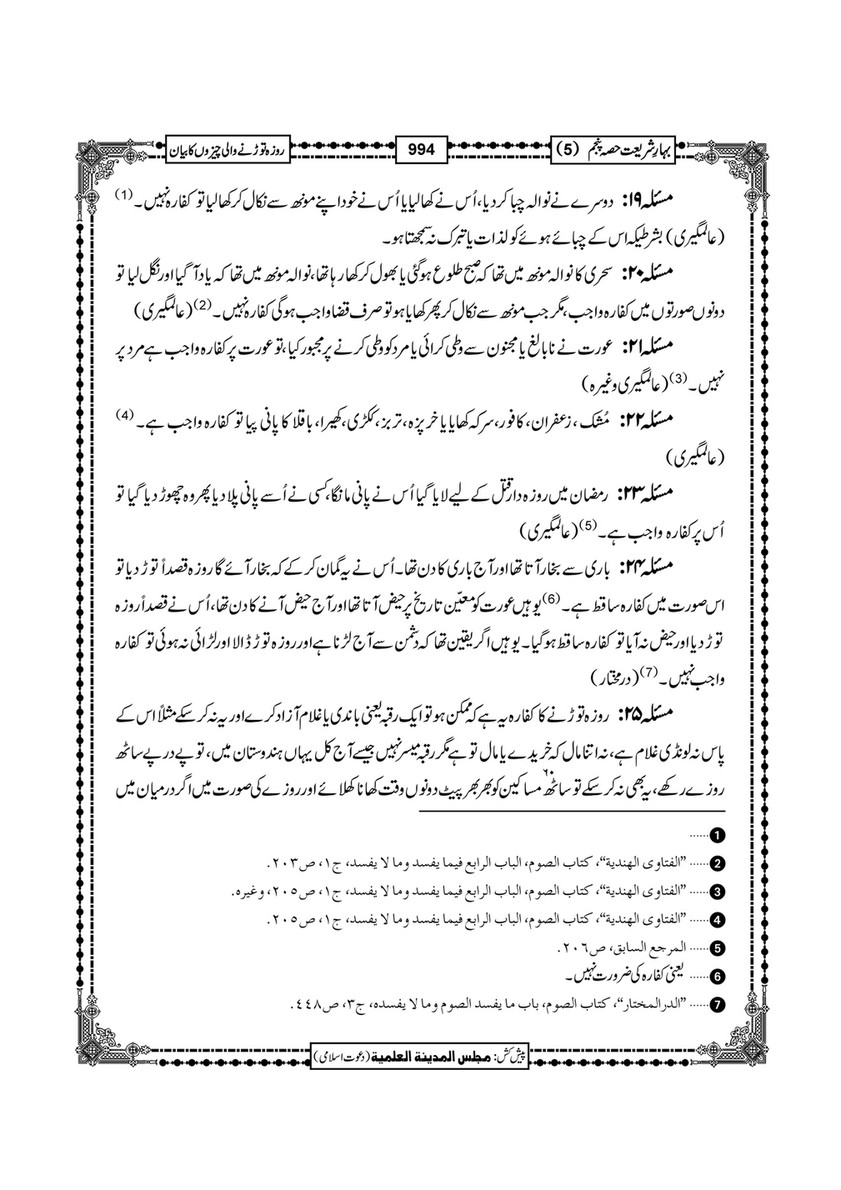 بہارِ شریعت حصہ پنجم (5)
994
روزہ توڑنے والی چیزوں کا بیان
مسئلہ ۱۹: دوسرے نے نوالہ چبا کر دیا، اُس نے کھا لیا یا اُس نے خود اپنے مونھ سے نکال کر کھا لیا تو کفارہ نہیں۔ (1)
(عالمگیری) بشرطیکہ اس کے چبائے ہوئے کو لذات یا تبرک نہ سمجھتا ہو۔
مسئلہ ۲۰: سحری کا نوالہ مونھ میں تھا کہ صبح طلوع ہوگئی یا بھول کر کھا رہا تھا، نوالہ مونھ میں تھا کہ یاد آگیا اور نگل لیا تو
دونوں صورتوں میں کفارہ واجب، مگر جب مونھ سے نکال کر پھر کھایا ہو تو صرف قضا واجب ہوگی کفارہ نہیں۔ (2) (عالمگیری)
مسئلہ ۲۱: عورت نے نابالغ یا مجنون سے وطی کرائی یا مرد کو وطی کرنے پر مجبور کیا، تو عورت پر کفارہ واجب ہے مرد پر
نہیں۔ (3) (عالمگیری وغیرہ)
مسئلہ ۲۲: مُشک، زعفران، کافور، سرکہ کھایا یا خرپزہ، تربز، ککڑی، کھیرا، باقلا کا پانی پیا تو کفارہ واجب ہے۔ (4)
(عالمگیری)
مسئلہ ۲۳: رمضان میں روزہ دار قتل کے لیے لایا گیا اُس نے پانی مانگا، کسی نے اُسے پانی پلا دیا پھر وہ چھوڑ دیا گیا تو
اُس پر کفارہ واجب ہے۔ (5) (عالمگیری)
مسئلہ ۲۴: باری سے بخار آتا تھا اور آج باری کا دن تھا۔ اُس نے یہ گمان کر کے کہ بخار آئے گا روزہ قصداً توڑ دیا تو
اس صورت میں کفارہ ساقط ہے۔ (6) یوہیں عورت کو معیّن تاریخ پر حیض آتا تھا اور آج حیض آنے کا دن تھا، اُس نے قصداً روزہ
توڑ دیا اور حیض نہ آیا تو کفارہ ساقط ہوگیا۔ یوہیں اگر یقین تھا کہ دشمن سے آج لڑنا ہے اور روزہ توڑ ڈالا اور لڑائی نہ ہوئی تو کفارہ
واجب نہیں۔ (7) (درمختار)
مسئلہ ۲۵: روزہ توڑنے کا کفارہ یہ ہے کہ ممکن ہو تو ایک رقبہ یعنی باندی یا غلام آزاد کرے اور یہ نہ کر سکے مثلاً اس کے
پاس نہ لونڈی غلام ہے، نہ اتنا مال کہ خریدے یا مال تو ہے مگر رقبہ میسر نہیں جیسے آج کل یہاں ہندوستان میں، تو پے در پے ساٹھ
روزے رکھے، یہ بھی نہ کر سکے تو ساٹھ ۶۰ مساکین کو بھر بھر پیٹ دونوں وقت کھانا کھلائے اور روزے کی صورت میں اگر درمیان میں
1 ......
2 ...... ”الفتاوی الھندیة“، کتاب الصوم، الباب الرابع فیما یفسد وما لا یفسد، ج۱، ص۲۰۳.
3 ...... ”الفتاوی الھندیة“، کتاب الصوم، الباب الرابع فیما یفسد وما لا یفسد، ج۱، ص۲۰۵، وغیرہ.
4 ...... ”الفتاوی الھندیة“، کتاب الصوم، الباب الرابع فیما یفسد وما لا یفسد، ج۱، ص۲۰۵.
5 ...... المرجع السابق، ص۲۰۶.
6 ...... یعنی کفارہ کی ضرورت نہیں۔
7 ...... ”الدرالمختار“، کتاب الصوم، باب ما یفسد الصوم وما لا یفسدہ، ج۳، ص۴۴۸.
پیش کش: مجلس المدینة العلمیة (دعوت اسلامی)